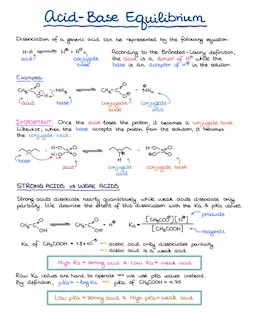 Acid-Base Equilibrium
Dissociation of a generic acid can be represented by the following equation:
H-A ⇌ H⊕ + A⊖
acid conjugate base
According to the Brønsted-Lowry definition,
the acid is a donor of H⊕ while the
base is an acceptor of H⊕ in the solution
Examples:
acid base conjugate base conjugate acid
IMPORTANT: Once the acid loses the proton, it becomes a conjugate base.
Likewise, when the base accepts the proton from the solution, it becomes
the conjugate acid.
base acid conjugate acid conjugate base
STRONG ACIDS vs WEAK ACIDS
Strong acids dissociate nearly quantitatively while weak acids dissociate only
partially. We describe the extent of this dissociation with the Ka & pKa values.
Ka = [CH₃COO⊖][H⊕] products
[CH₃COOH] reagents
Ka of CH₃COOH = 1.8×10⁻⁵ ⇒ acetic acid only dissociates partially
⇒ acetic acid is a weak acid
High Ka = strong acid & Low Ka = weak acid
Raw Ka values are hard to operate ⇒ we use pKa values instead.
By definition, pKa = -log Ka ⇒ pKa of CH₃COOH = 4.75
Low pKa = strong acid & High pKa = weak acid